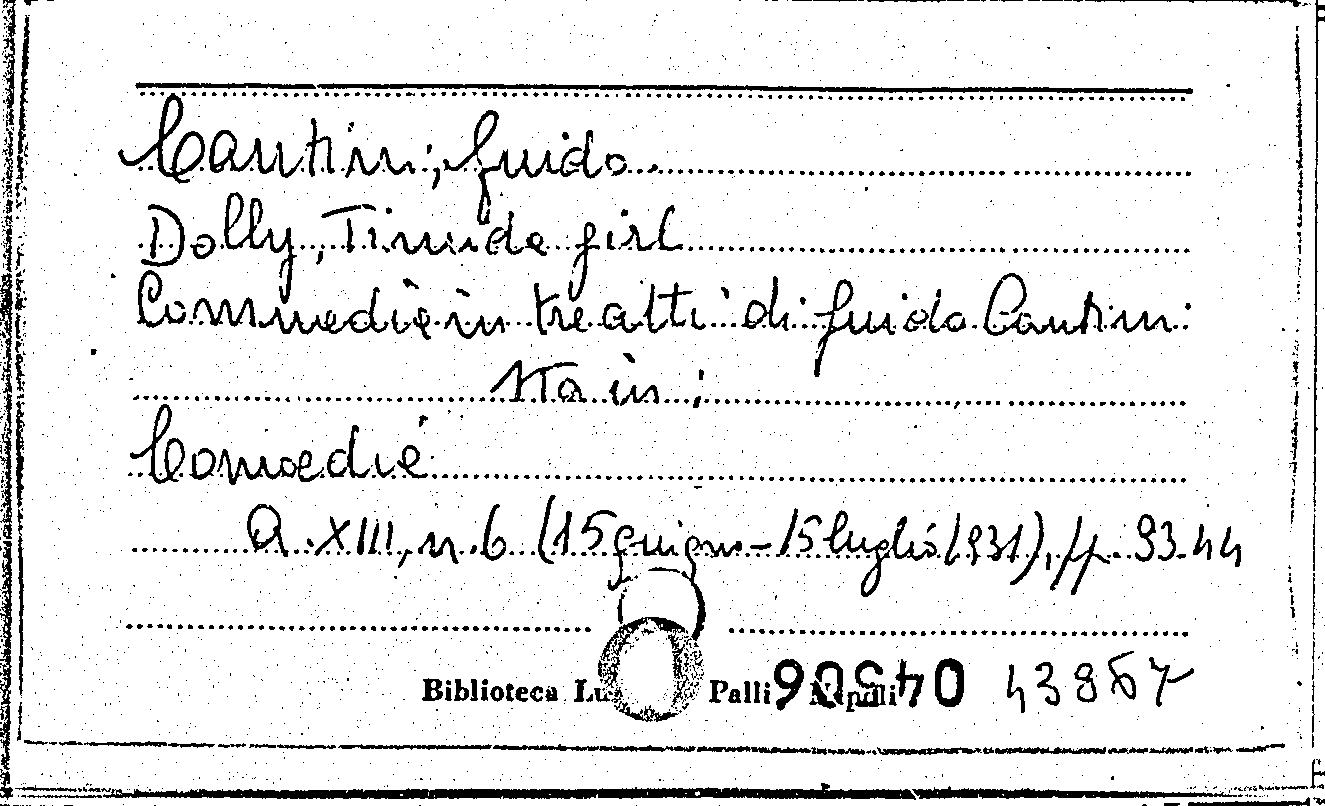 Cantini, Guido
Dolly, Timida girl
Commedia in tre atti di Guido Cantini
Sta in:
Comoedia
A. XIII, n. 6 (15 giugno - 15 luglio 1931), pp. 93-44
Biblioteca Lu Palli Napoli